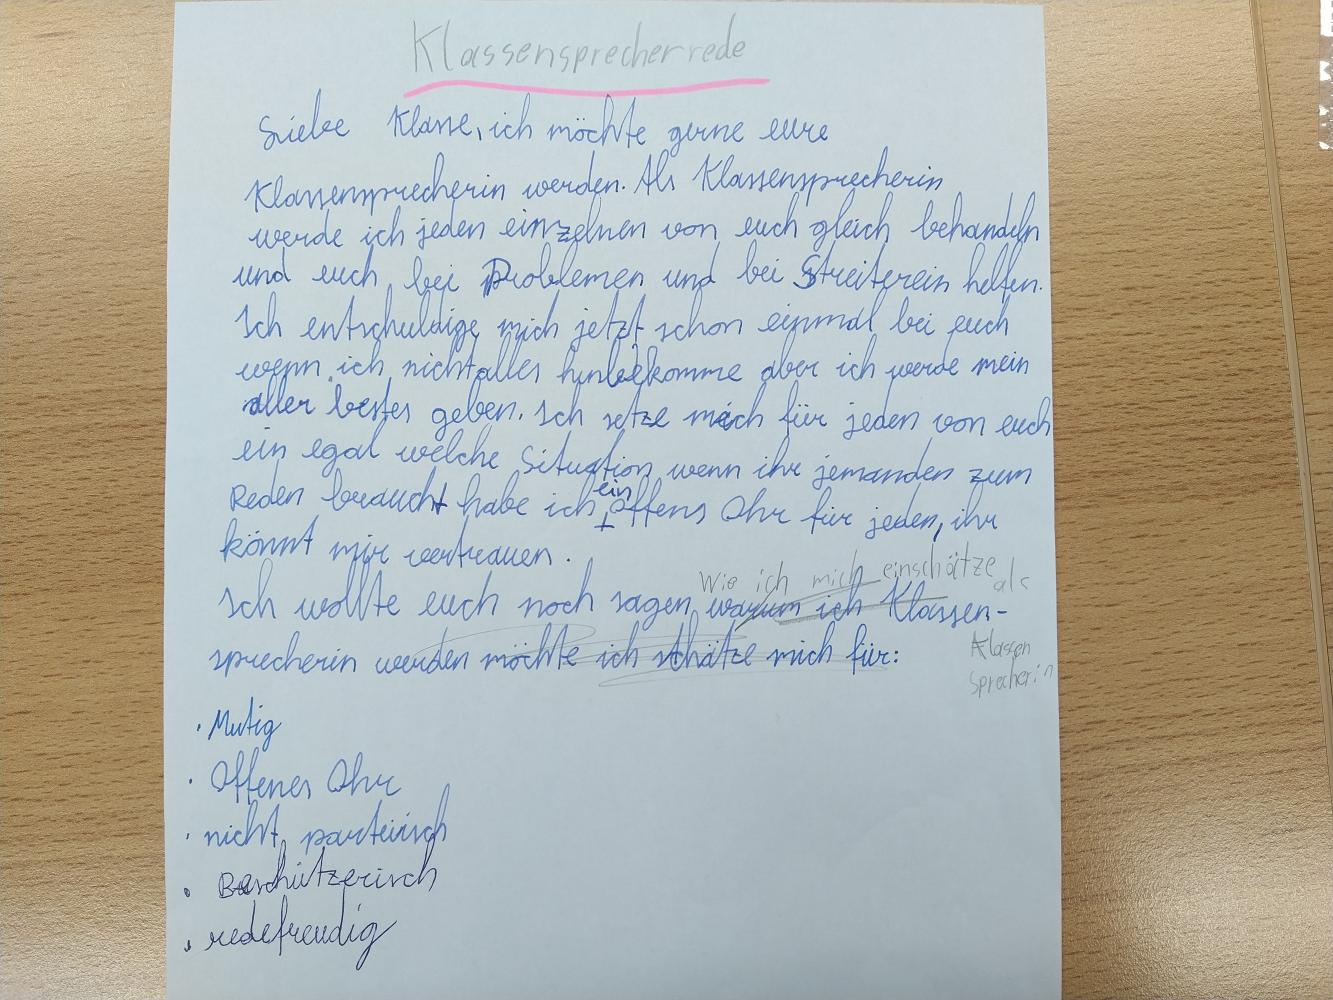 Klassensprecherrede
Liebe Klasse, ich möchte gerne eure
Klassensprecherin werden. Als Klassensprecherin
werde ich jeden einzelnen von euch gleich behandeln
und euch bei Problemen und bei Streiterein helfen.
Ich entschuldige mich jetzt schon einmal bei euch
wenn ich nicht alles hinbekomme aber ich werde mein
aller bestes geben. Ich setze mich für jeden von euch
ein egal welche Situation wenn ihr jemanden zum
Reden braucht habe ich ein offens Ohr für jeden, ihr
könnt mir vertrauen.
Wie ich mich einschätze als
Ich wollte euch noch sagen warum ich Klassen-
sprecherin werden möchte ich schätze mich für:
Klassen
sprecherin
· Mutig
· Offenes Ohr
· nicht parteiisch
· Beschützerisch
· redefreudig